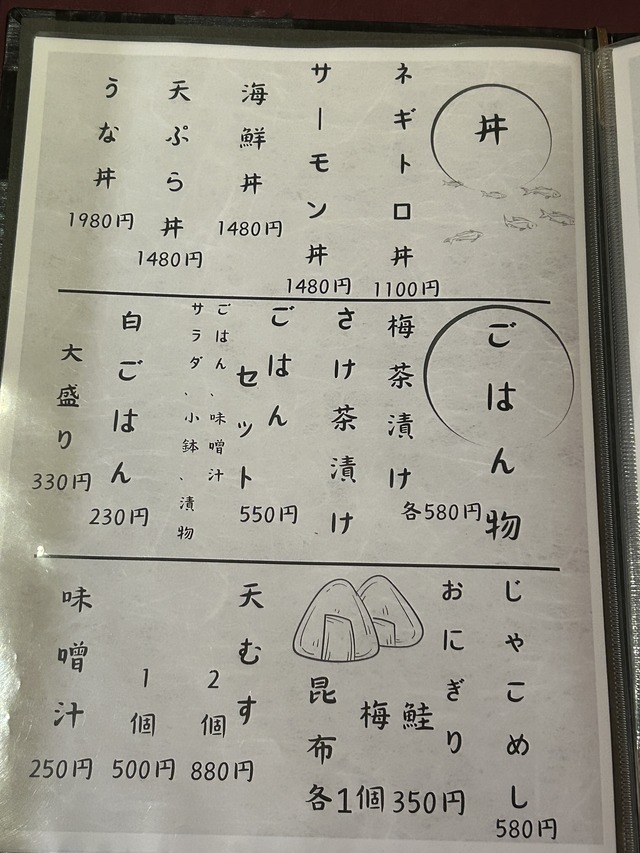 丼
ネギトロ丼
1100円
サーモン丼
1480円
海鮮丼
1480円
天ぷら丼
1480円
うな丼
1980円
ごはん物
梅茶漬け
さけ茶漬け
各580円
ごはん
セット
550円
ごはん、味噌汁
サラダ、小鉢、漬物
白ごはん
230円
大盛り
330円
じゃこめし
580円
おにぎり
鮭
梅
昆布
各1個350円
天むす
2個
880円
1個
500円
味噌汁
250円